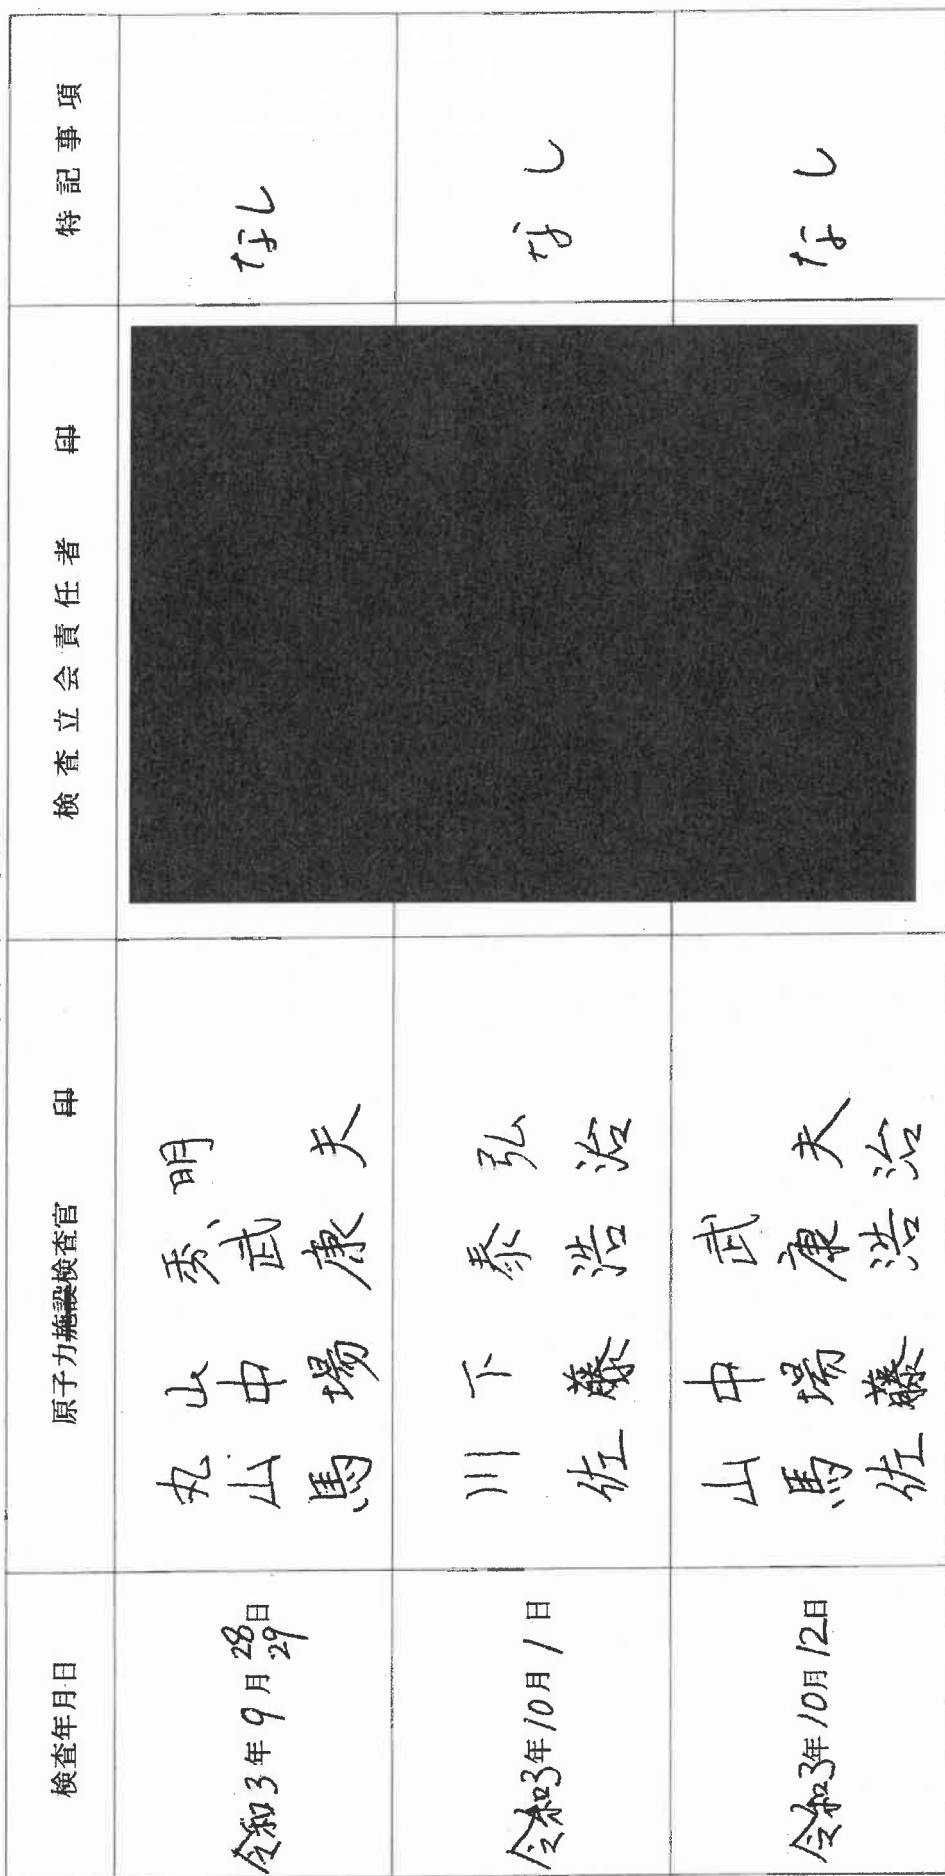 検査年月日
原子力施設検査官 印
検査立会責任者 印
特記事項
令和3年9月28日
29
丸山秀明
山中武
馬場康夫
なし
令和3年10月1日
川下泰弘
佐藤浩治
なし
令和3年10月12日
山中武
馬場康夫
佐藤浩治
なし